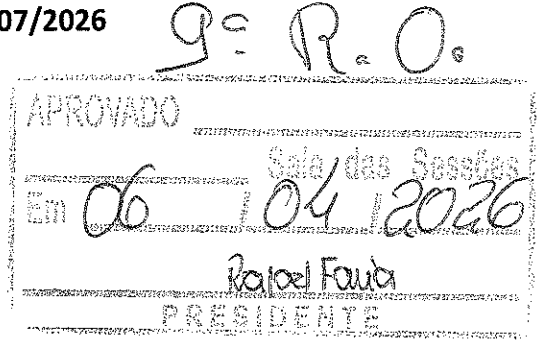 07/2026
9ª R. O.
APROVADO
Sala das Sessões
Em 06 / 04 / 2026
Rafael Faria
PRESIDENTE